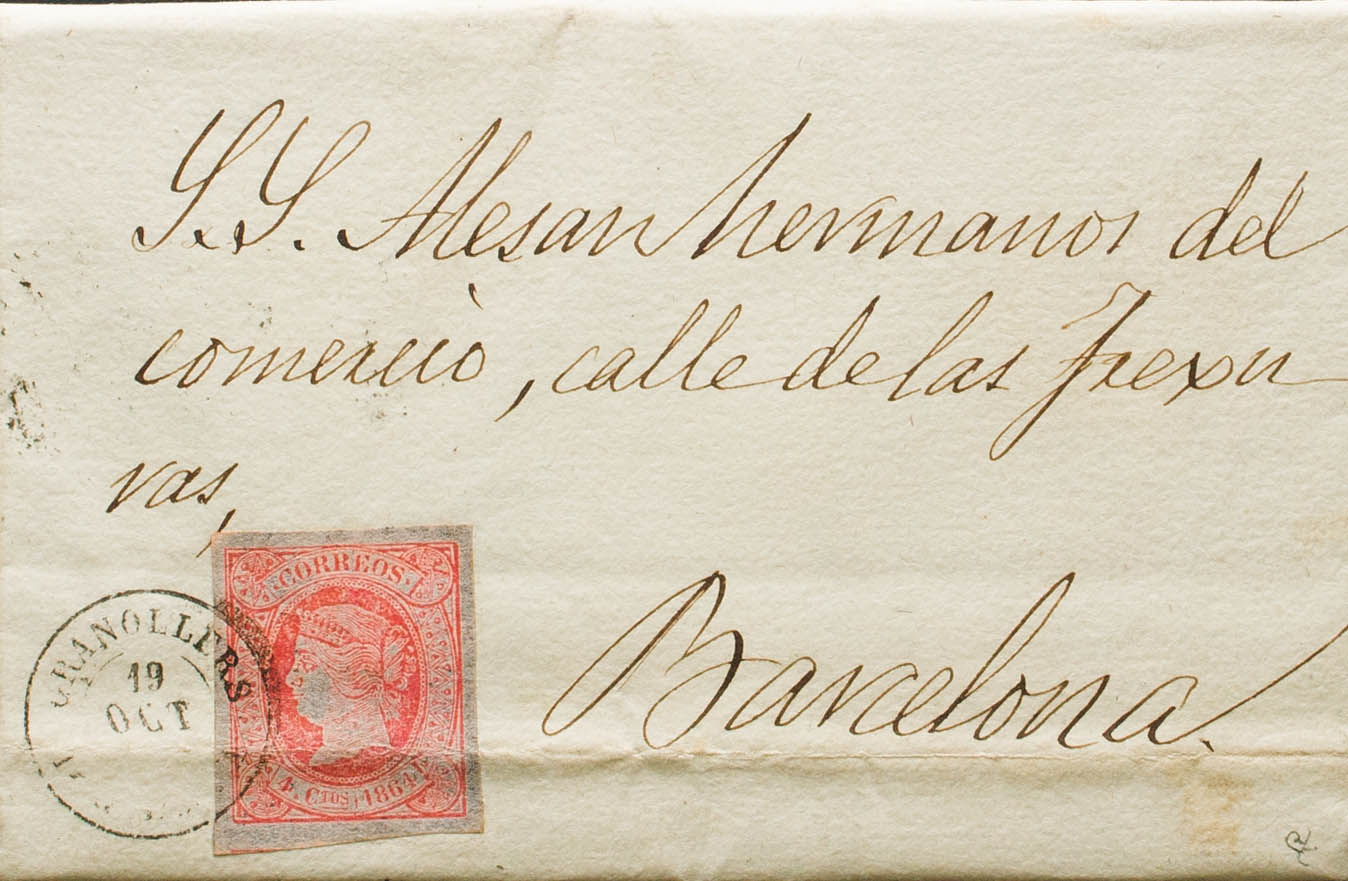 S.S. Alesan hermanos del
comercio, calle de las Trexu
ras,
Barcelona.
CORREOS.
4. CTOS. 1864
GRANOLLERS
19
OCT